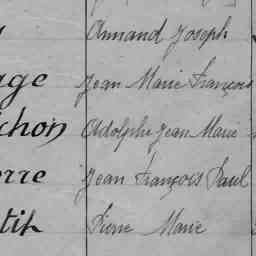 Armand Joseph
age Jean Marie François
chon Adolphe Jean Marie
rre Jean François Paul
tit Pierre Marie